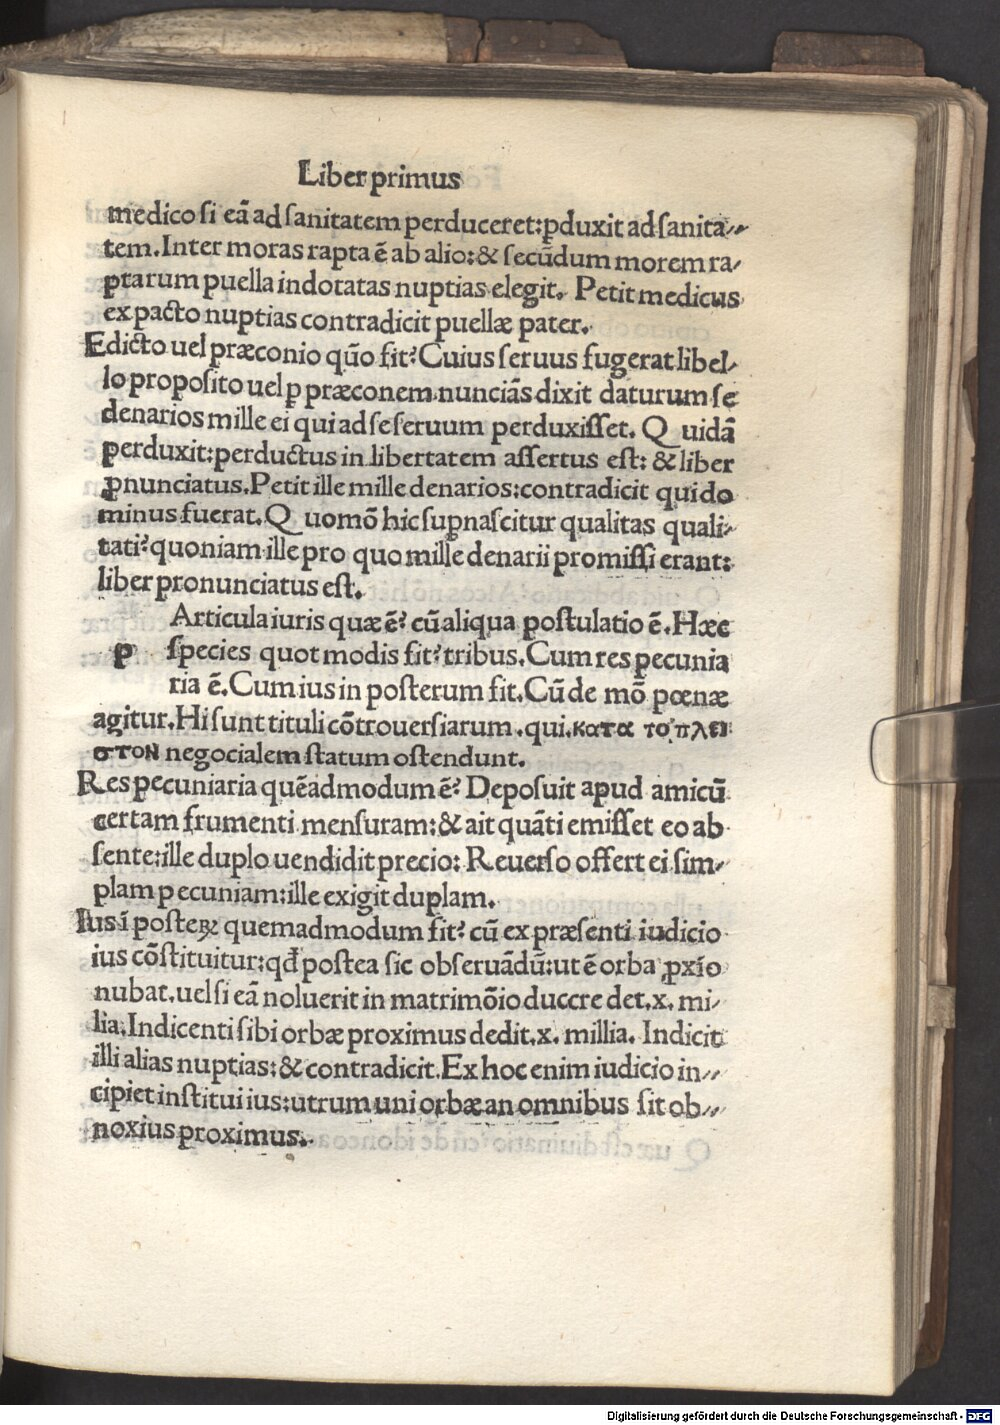 Liber primus
medico si eã ad sanitatem perduceret: ꝓduxit ad sanita//
tem. Inter moras rapta ẽ ab alio: & secũdum morem ra/
ptarum puella indotatas nuptias elegit. Petit medicus
ex pacto nuptias contradicit puellæ pater.
Edicto uel præconio quõ fit? Cuius seruus fugerat libel/
lo proposito uel ꝑ præconem nunciãs dixit daturum se
denarios mille ei qui ad se seruum perduxisset. Q uidã
perduxit: perductus in libertatem assertus est: & liber
ꝓnunciatus. Petit ille mille denarios: contradicit qui do
minus fuerat. Q uomõ hic supnascitur qualitas quali/
tati? quoniam ille pro quo mille denarii promissi erant:
liber pronunciatus est.
Articula iuris quæ ẽ? cũ aliqua postulatio ẽ. Hæc
p species quot modis fit? tribus. Cum res pecunia
ria ẽ. Cum ius in posterum fit. Cũ de mõ pœnæ
agitur. Hi sunt tituli cõtrouersiarum. qui. κατα το πλει
στον negocialem statum ostendunt.
Res pecuniaria quẽadmodum ẽ? Deposuit apud amicũ
certam frumenti mensuram: & ait quãti emisset eo ab
sente: ille duplo uendidit precio: Reuerso offert ei sim/
plam pecuniam: ille exigit duplam.
Ius ĩ posteꝝ quemadmodum fit? cũ ex præsenti iudicio
ius cõstituitur: qđ postea sic obseruãdũ: ut ẽ orba ꝓxĩo
nubat. uel si eã noluerit in matrimõio duccre det. x. mi/
lia. Indicenti sibi orbæ proximus dedit. x. millia. Indicit
illi alias nuptias: & contradicit. Ex hoc enim iudicio in//
cipiet institui ius: utrum uni orbæ an omnibus sit ob//
noxius proximus.
Digitalisierung gefördert durch die Deutsche Forschungsgemeinschaft - DFG